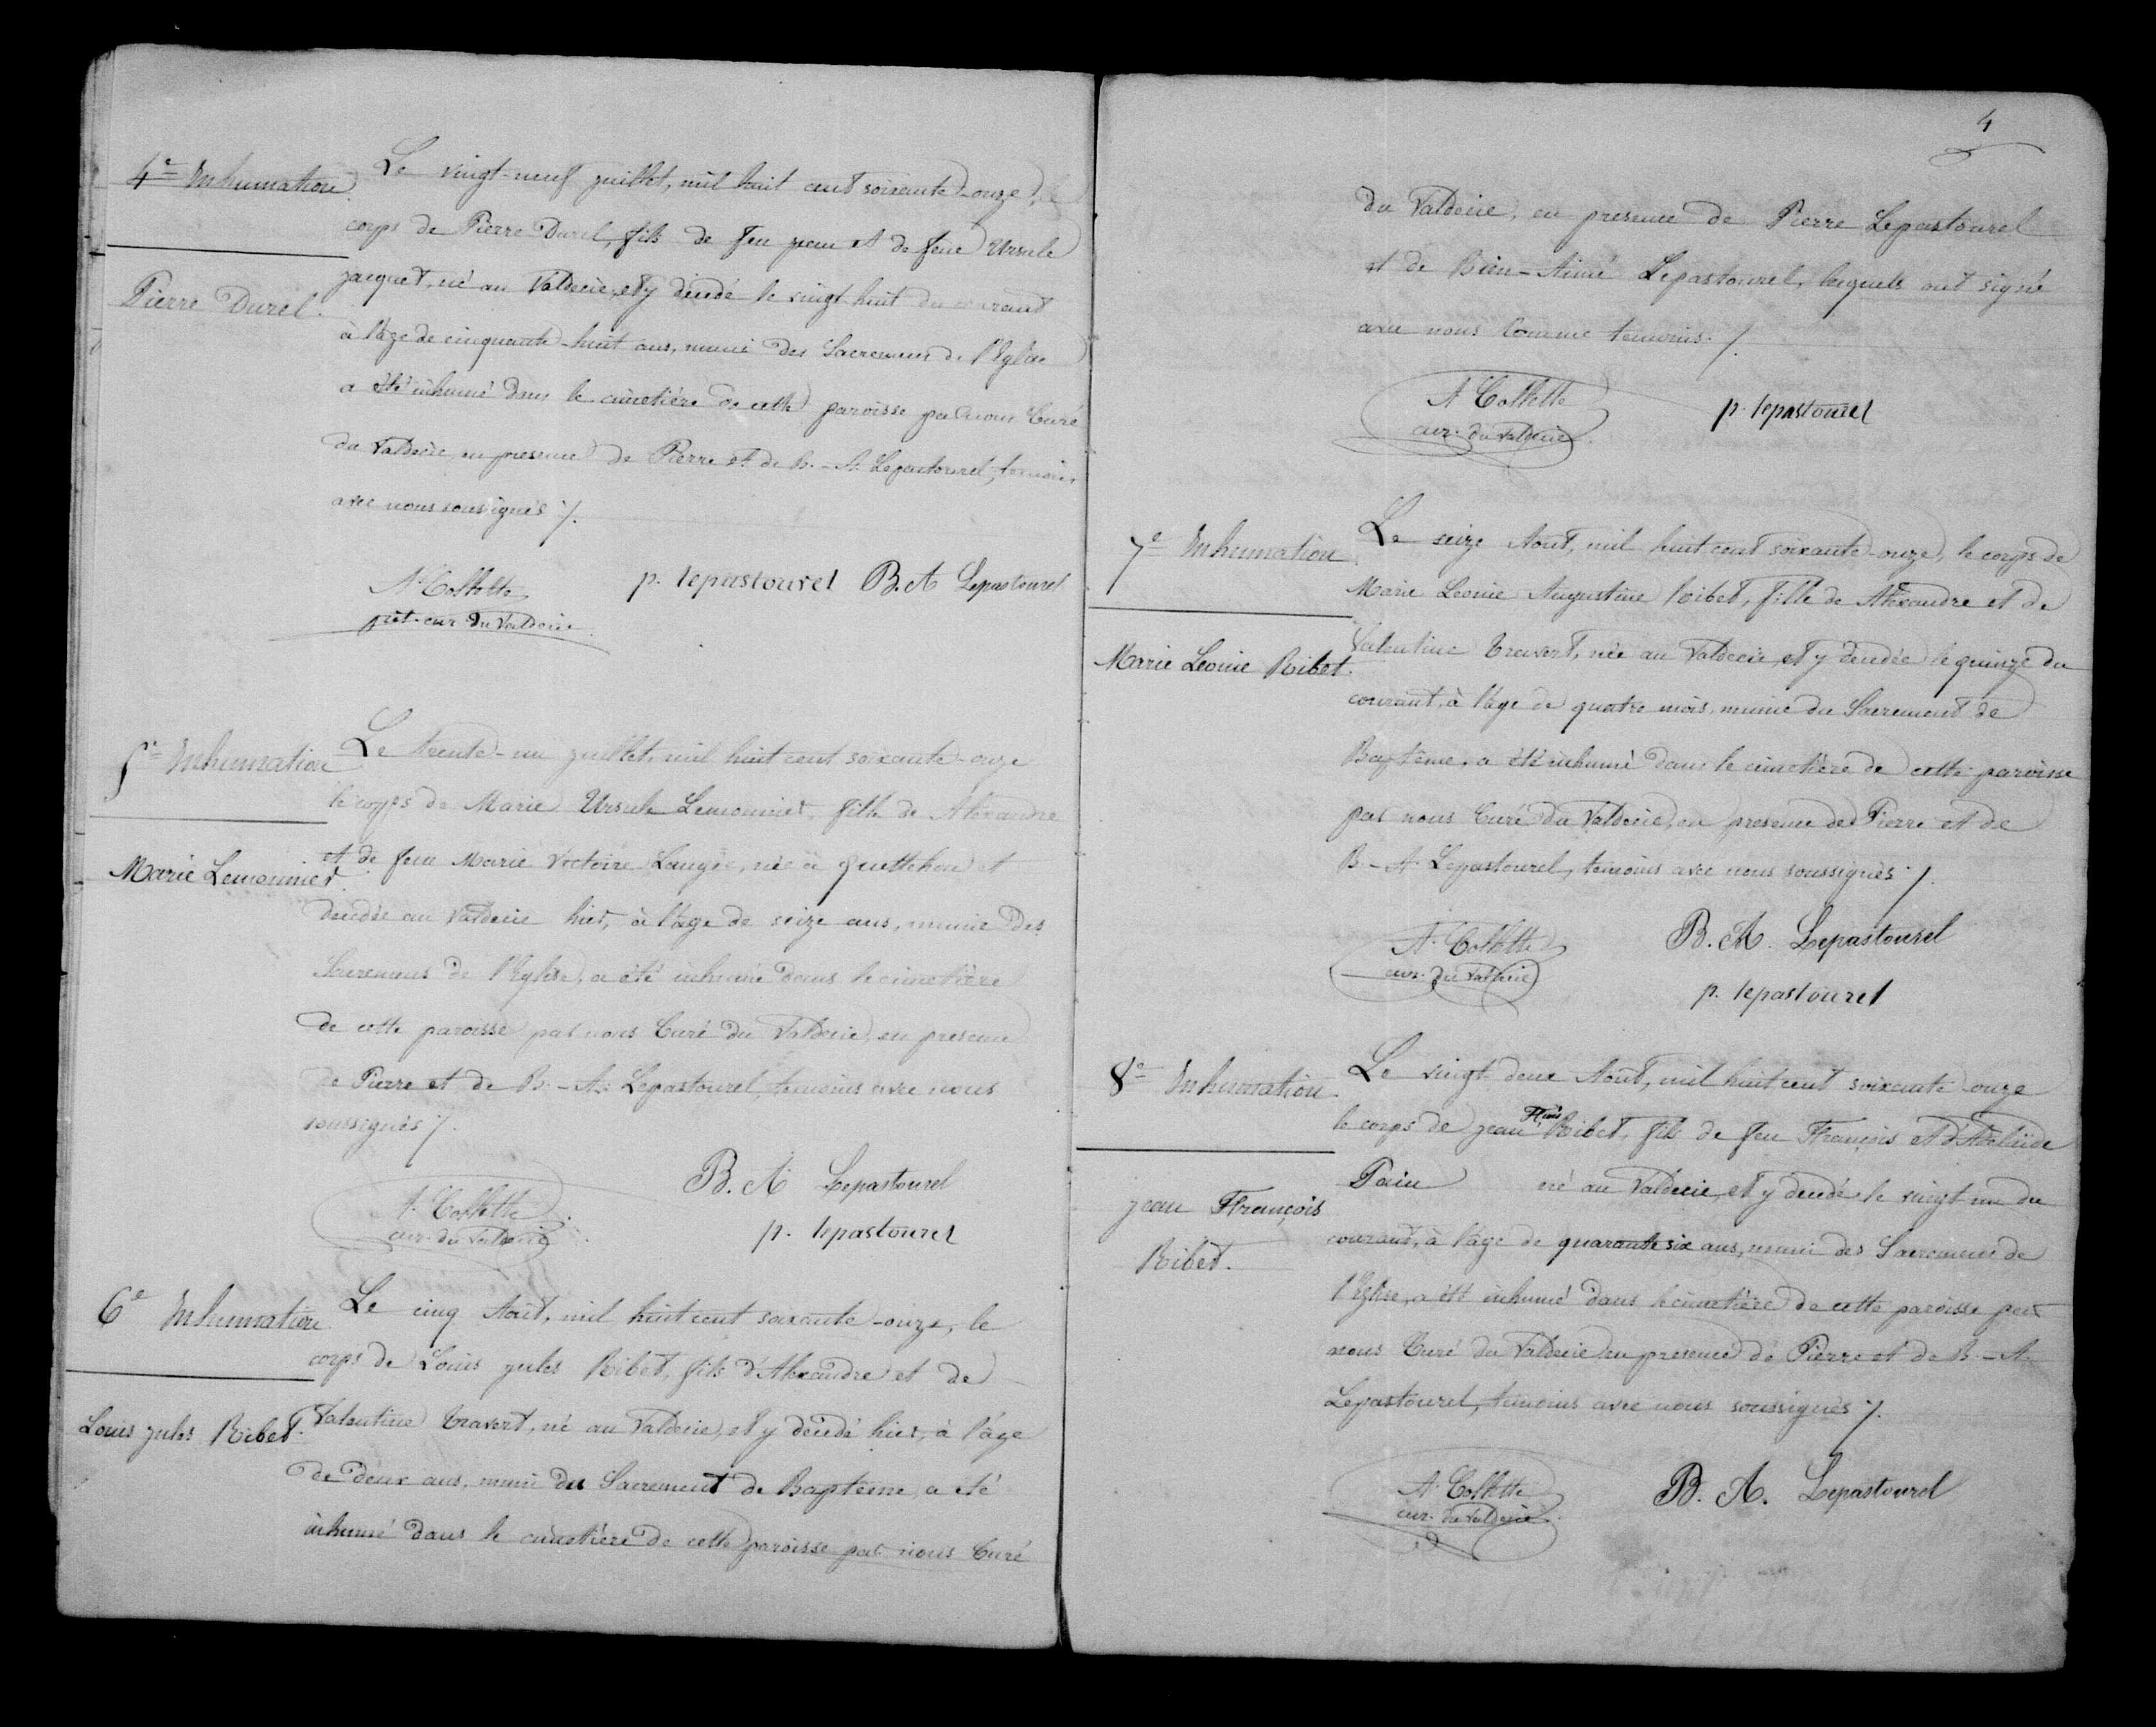 4e Inhumation.
Pierre Durel.
Le vingt-neuf juillet, mil huit cent soixante-onze, le
corps de Pierre Durel, fils de feu jean et de feue Ursule
jacquet, né au Valdecie, et y décédé le vingt huit du courant
à l'âge de cinquante-huit ans, muni des Sacremens de l'Eglise
a été inhumé dans le cimetière de cette paroisse par nous Curé
du Valdecie, en presence de Pierre et de B.-A. Lepastourel, temoins
avec nous soussignés ./.
A. Collette
prêt-cur du Valdecie
p. lepastourel B. A Lepastourel
5e Inhumation
Marie Lemonnier.
Le trente-un juillet, mil huit cent soixante-onze
le corps de Marie Ursule Lemonnier, fille de Alexandre
et de feue Marie Victoire Laugée, née à Quettehou et
décédée au Valdecie hier, à l'âge de seize ans, munie des
Sacremens de l'Eglise, a été inhumée dans le cimetière
de cette paroisse par nous Curé du Valdecie, en presence
de Pierre et de B.-A. Lepastourel, temoins avec nous
soussignés ./.
A. Collette
cur. du Valdecie
B. A Lepastourel
p. lepastourel
6e Inhumation
Louis jules Ribet.
Le cinq Aout, mil huit cent soixante-onze, le
corps de Louis jules Ribet, fils d'Alexandre et de
Valentine Travert, né au Valdecie, et y décédé hier, à l'âge
de deux ans, muni du Sacrement de Baptême, a été
inhumé dans le cimetière de cette paroisse par nous Curé
4
du Valdecie, en presence de Pierre Lepastourel
et de Bien-Aimé Lepastourel, lesquels ont signé
avec nous comme temoins. /.
A Collette
cur. du Valdecie.
p. lepastourel
7e Inhumation
Marie Leonie Ribet.
Le seize Aout, mil huit cent soixante-onze, le corps de
Marie Leonie Augustine Ribet, fille de Alexandre et de
Valentine Travert, née au Valdecie, et y décédée le quinze du
courant, à l'âge de quatre mois, munie du Sacrement de
Baptême, a été inhumé dans le cimetière de cette paroisse
par nous Curé du Valdecie, en presence de Pierre et de
B.-A. Lepastourel, temoins avec nous soussignés ./.
A. Collette
cur. du Valdecie
B. A. Lepastourel
p. lepastourel
8e Inhumation.
jean François
Ribet.
Le vingt-deux Aout, mil huit cent soixante-onze
le corps de jean Fçois Ribet, fils de feu François et d'Adélaïde
Pain né au Valdecie, et y décédé le vingt-un du
courant, à l'âge de quarante six ans, muni des Sacremens de
l'Eglise, a été inhumé dans le cimetière de cette paroisse par
nous Curé du Valdecie en presence de Pierre et de B.-A.
Lepastourel, temoins avec nous soussignés ./.
A. Collette
cur. du Valdecie.
B. A. Lepastourel